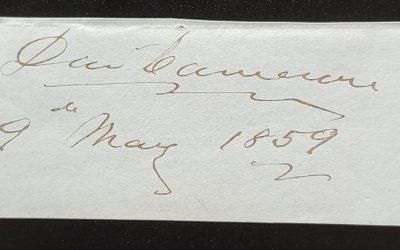 Don Cameron
9 de May 1859